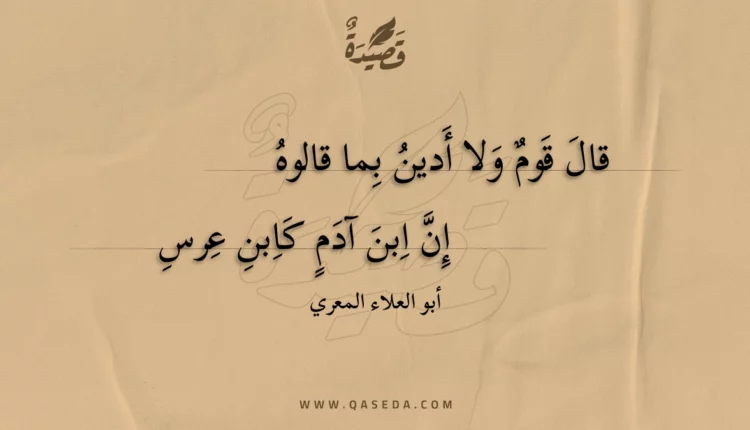 قَصِيْدَةٌ
قالَ قَومٌ وَلا أَدينُ بِما قالوهُ
إِنَّ اِبنَ آدَمٍ كَاِبنِ عِرسِ
أبو العلاء المعري
WWW.QASEDA.COM